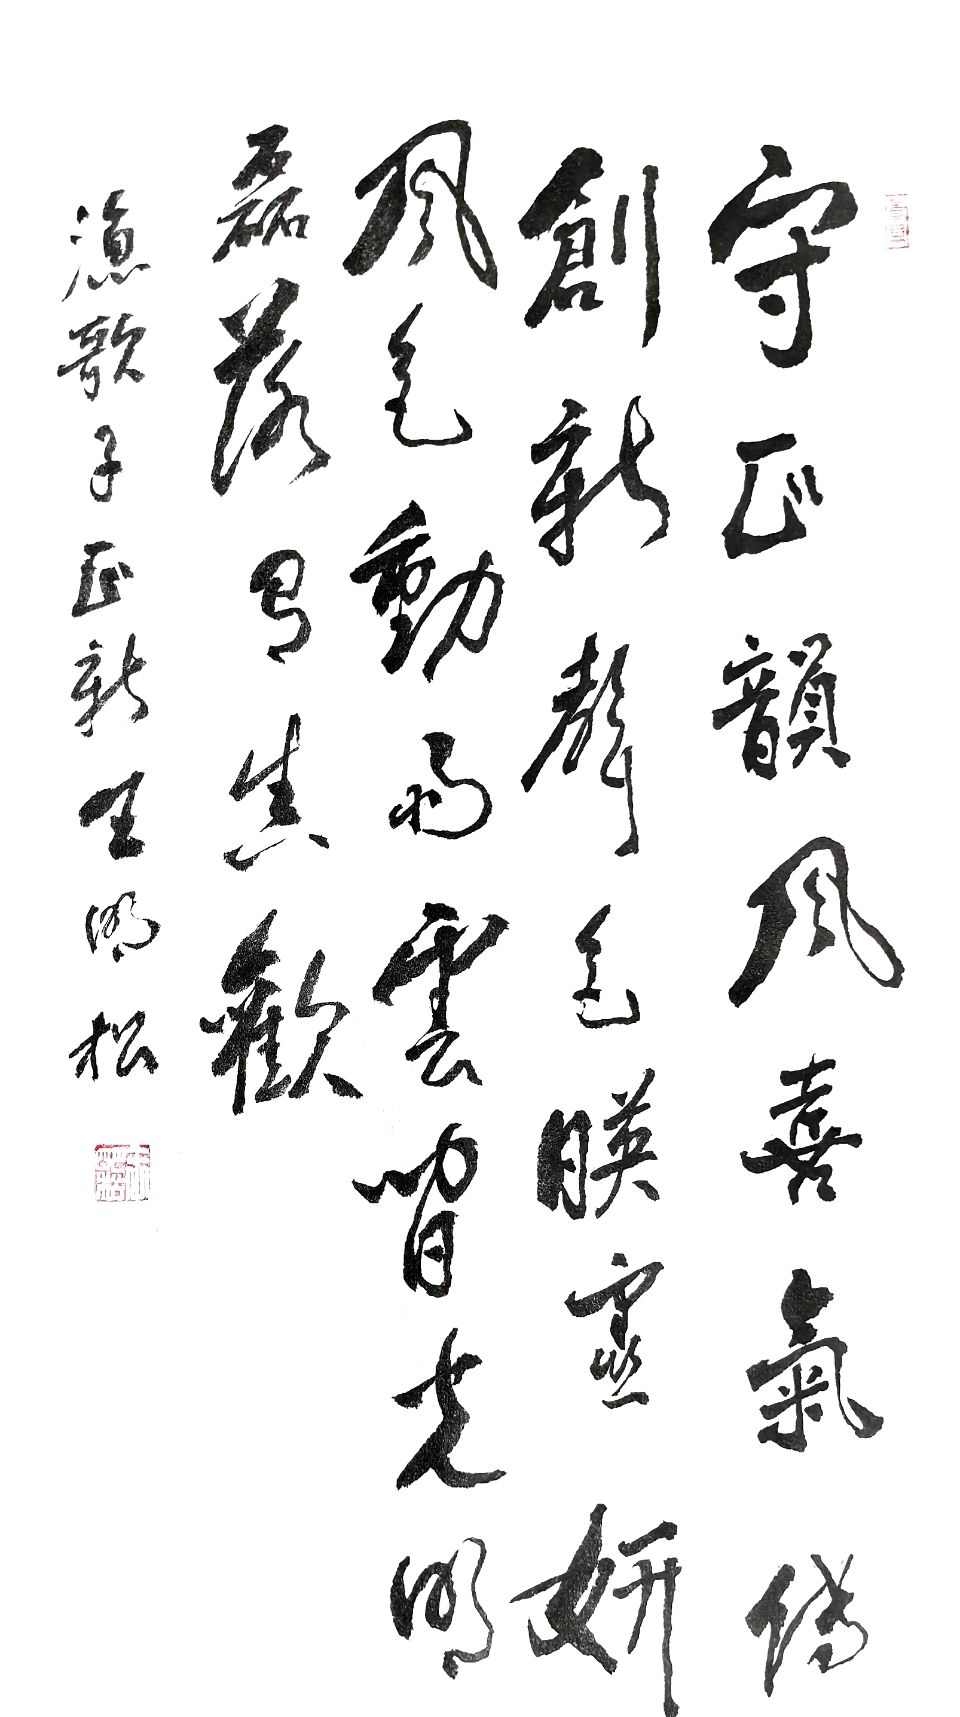 守正韻風喜氣傳
創新聲色映妍
風色動雨雲間光明
磊落真歡
漁歌子正新王明松